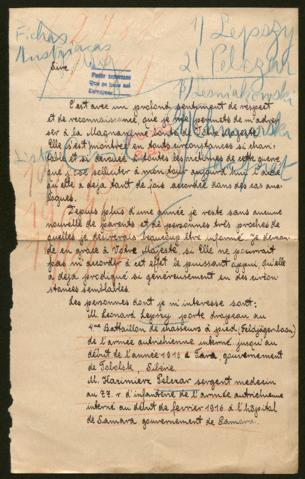 Fichas
Austriacas
1) Lepszy
2) Pelczar
Sire,
C'est avec un profond sentiment de respect
et de reconnaissance, que je me permets de m'adres-
ser à la Magnanime bonté de Votre Majesté.
Elle s'est montrée en toutes circonstances si chari-
table et si dévouée à toutes les victimes de cette guerre
que j'ose solliciter à mon tour aujourd'hui l'aide
qu'elle a déjà tant de fois accordée dans des cas ana-
logues.
Depuis plus d'une année je reste sans aucune
nouvelle de parents et de personnes très proches
de quelles je désirerais beaucoup être informé. Je deman-
de en grâce à Votre Majesté si Elle ne pourrait
pas m'accorder à cet effet le puissant appui, qu'elle
a déjà prodigué si généreusement en des circon-
stances semblables.
Les personnes dont je m'interesse sont:
M. Leonard Lepszy porte drapeau au
4me Bataillon de chasseurs à pied (Feldjägerbaon)
de l'armée autrichienne interné jusqu'au
début de l'année 1916 à Tara gouvernement
de Tobolsk, Sibérie.
M. Kazimierz Pelczar sergent medecin
au 77. r. d'infanterie de l'armée autrichienne
interné au début de fevrier 1916 à l'hôpital
de Samara gouvernement de Samara.